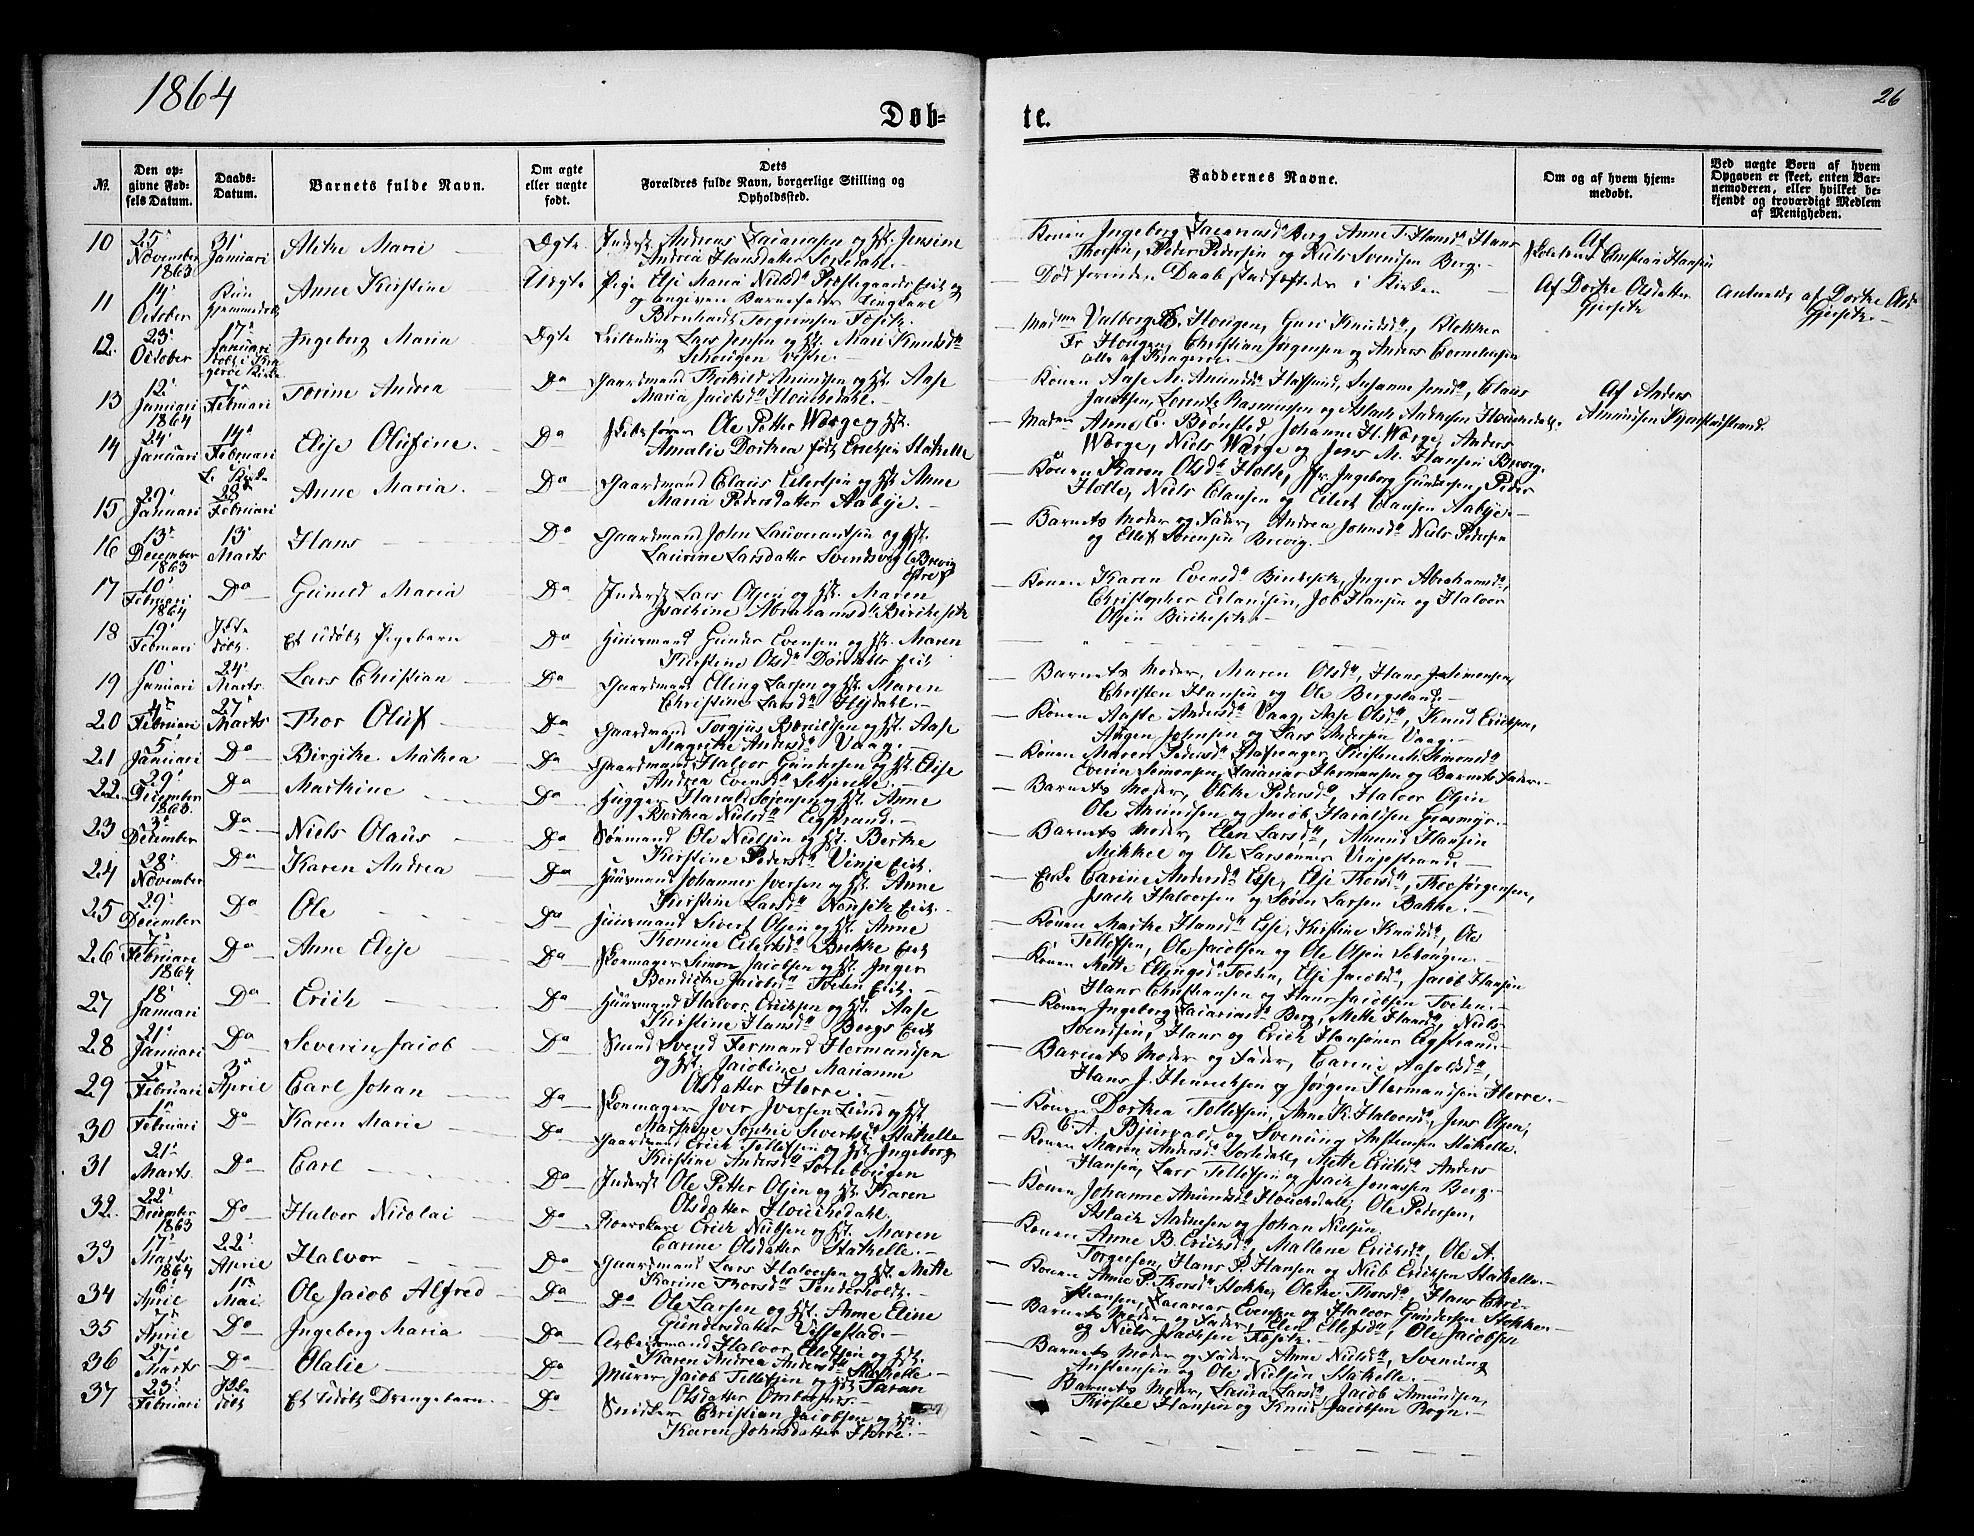 1864
26
Døb-
te.
№.
Den op-
givne Fød-
sels Datum.
Daabs-
Datum.
Barnets fulde Navn.
Om ægte
eller uægte
født.
Dets
Forældres fulde Navn, borgerlige Stilling og
Opholdssted.
Faddernes Navne.
Om og af hvem hjem-
medøbt.
Ved uægte Børn af hvem
Opgaven er skeet, enten Bar-
nemoderen, eller hvilket be-
kjendt og troværdigt Medlem
af Menigheden.
10 25 November 1863 31 Januari Alethe Marie Ægte Inderst Andreas Zacariasen og H. Jensine
Andrea Hansdatter
Konen Ingeborg Zacariasd Berg Anne T. Hansd Hans
Thorsen, Peder Pedersen og Niels Svendsen Berg.
Af Christian Hansen
11 14 October Kun hjemmedøbt Anne Kirstine Uægte Pige Elsi Maria Nielsd
og angiven Barnefader Ungkarl
Bernhard Torgrimsen
Død forinden Daab stadfæstedes i Kirken
Af Dorthe Olsdatter
Anmeldt af Dorthe
12 23 October 17 Januari Ingeborg Maria Ægte Leilending Lars Jensen og H. Mari Knudsd
Madme Valborg Hougen, Guri Knudsd, Klokker
Fr. Hougen, Christian Jørgensen og Anders Corneliusen
alle af Kragerøe.
13 12 Januari 1864 7 Februari Torine Andrea Do Gaardmand Thorkild Amundsen og H. Aase
Maria Jacobsd
Konen Aase M. Amundsd Hafsund, Susanne Jensd, Claus
Jacobsen, Lorentz Rasmussen og Aslack Andresen
Af Anders
Amundsen
14 24 Januari 14 Februari Elise Olufine Do Skibsfører Ole Petter Worge og H.
Amalie Dorthea født Ericksen Stathelle
Madm Anne E. Brønsted, Johanne H. Worge, Anders
Worge, Niels Worge og Jens M. Hansen Brevig.
15 29 Januari 28 Februari Anne Maria Do Gaardmand Claus Eilertsen og H. Anne
Maria Pedersdatter Aabye.
Konen Karen Olsd Holte, Jfr. Ingeborg Gundersen, Peder
Holte, Niels Clausen og Eilert Clausen Aabye.
16 13 December 1863 13 Marts Hans Do Gaardmand John Lauverantsen og H.
Laurine Larsdatter
Barnets Moder og Fader, Andrea Johnsd Niels Pedersen
og Ellef Sørensen Brevig.
17 10 Februari 1864 Do Gunild Maria Do Inderst Lars Olsen og H. Maren
Isachine Abrahamsd
Konen Karen Evensd, Inger Abrahamsd,
Christopher Erlandsen, Job Hansen og Halvor
Olsen
18 19 Februari Ikke døbt. Et udøbt Pigebarn Do Huusmand Gunder Evensen og H. Maren
Kirstine Olsd
19 10 Januari 24 Marts Lars Christian Do Gaardmand Elling Larsen og H. Maren
Christine Larsd
Barnets Moder, Maren Olsd, Hans Simonsen,
Christen Hansen og Ole Bergsland.
20 4 Februari 27 Marts Thor Oluf Do Gaardmand Torgius Bomildsen og H. Aase
Magrethe Andersd Vaag.
Konen Aaste Andersd Vaag, Aase Olsd, Knud Ericksen,
Johnsen og Lars Andersen Vaag.
21 5 Januari Do Birgithe Mathea Do Gaardmand Halvor Gundersen og H. Elise
Andrea Evensd
Konen Maren Pedersd, Simonsd
Even Simonsen, Zacarias Hermansen og Barnets Fader.
22. 29 December 1863 Do Marthine Do Hugger Harald Sørensen og H. Anne
Berthea Nielsd Eegstrand.
Barnets Moder, Olette Pedersd, Halvor Olsen
Ole Amundsen og Jacob Haraldsen Grasmyr.
23 3 December Do Niels Olaus Do Sømand Ole Nielsen og H. Berthe
Kirstine Pedersd Vinje Eie.
Barnets Moder, Elen Larsd, Amund Hansen
Mikkel og Ole Larsønner Vinjestrand.
24 28 November Do Karen Andrea Do Huusmand Johannes Iversen og H. Anne
Kirstine Larsd
Enke Carine Andersd Esse, Elsi Thorsd, Thor Jørgensen,
Isach Halvorsen og Søren Larsen Bakke.
25 29 December Do Ole Do Huusmand Sivert Olsen og H. Anne
Thomine Eilertsd
Konen Marthe Hansd Esse, Kirstine Knudsd, Ole
Tellefsen, Ole Jacobsen og Ole Olsen
26 7 Februari 1864 Do Anne Elise Do Skomager Simon Jacobsen og H. Inger
Bendicte Jacobsd Tveten
Konen Mette Ellingsd Tveten, Elsi Jacobsd, Jacob Hansen
Hans Christiansen og Hans Jacobsen Tveten.
27 18 Januari Do Erick Do Huusmand Halvor Ericksen og H. Aase
Kirstine Hansd Bergs Eie
Konen Ingeborg Zacariasd Berg, Mette Hansd, Niels
Svendsen, Hans og Erick Hansønner Eegstrand.
28 21 Januari Do Severin Jacob Do Smed Svend Fermand Hermandsen
og H. Jacobine Marianne
Olsdatter Herre.
Barnets Moder og Fader, Carine
Hans J. Henricksen og Jørgen Hermandsen Herre.
29 2 Februari 3 April Carl Johan Do Skomager Iver Iversen Lund og H.
Marthine Sophie Sivertsd Stathelle
Konen Dorthea Tollefsen, Anne K. Halvorsd, Jens Olsen,
E. A. Bjurvald og Svenung Anstensen Stathelle.
30 1 Februari Do Karen Marie Do Gaardmand Erick Tollefsen og H. Ingeborg
Kirstine Andersd
Konen Maren Andersd, Mette Ericksd, Anders
Hansen, Lars Tellefsen og Isack Jonassen Berg.
31 21 Marts Do Carl Do Inderst Ole Petter Olsen og H. Karen
Olsdatter
Konen Johanne Amundsd, Ole Pedersen,
Aslack Andresen og Johan Nielsen.
32. 22 December 1863 Do Halvor Nicolai Do Erick Nielsen og H. Maren
Carine Olsdatter Stathelle.
Konen Anne B. Ericksd, Mallene Ericksd, Ole A.
Torgersen, Hans P. Hansen og Niels Ericksen Stathelle.
33 17 Marts 1864 22 April Halvor Do Gaardmand Lars Halvorsen og H. Mette
Karine Thorsd Tenderholt.
Konen Anne P. Thorsd Stokke, Olette Thorsd, Hans Chri-
stiansen, Zacarias Evensen og Halvor Gundersen Stokke.
34 6 April 1 Mai Ole Jacob Alfred Do Do Ole Larsen og H. Anne Eline
Gundersdatter
Barnets Moder og Fader, Elen Ellefsd, Ole Jacobsen
og Niels Isacksen
35 7 April Do Ingeborg Maria Do Arbeidsmand Halvor og H.
Karen Andrea Andersd Stathelle
Barnets Moder og Fader, Anne Nielsd, Svenung
Anstensen og Ole Nielsen Stathelle.
36 27 Marts Do Olalie Do Murer Jacob Tellefsen og H. Taran
Olsdatter Ombordsnes
Barnets Moder, Laura Larsd, Jacob Amundsen,
Kjøstel Hansen og Knud Jacobsen Rogn.
37 23 Februari Ikke døbt Et udøbt Drengebarn. Do Snidker Christian Jacobsen og H.
Karen Johnsdatter Herre.